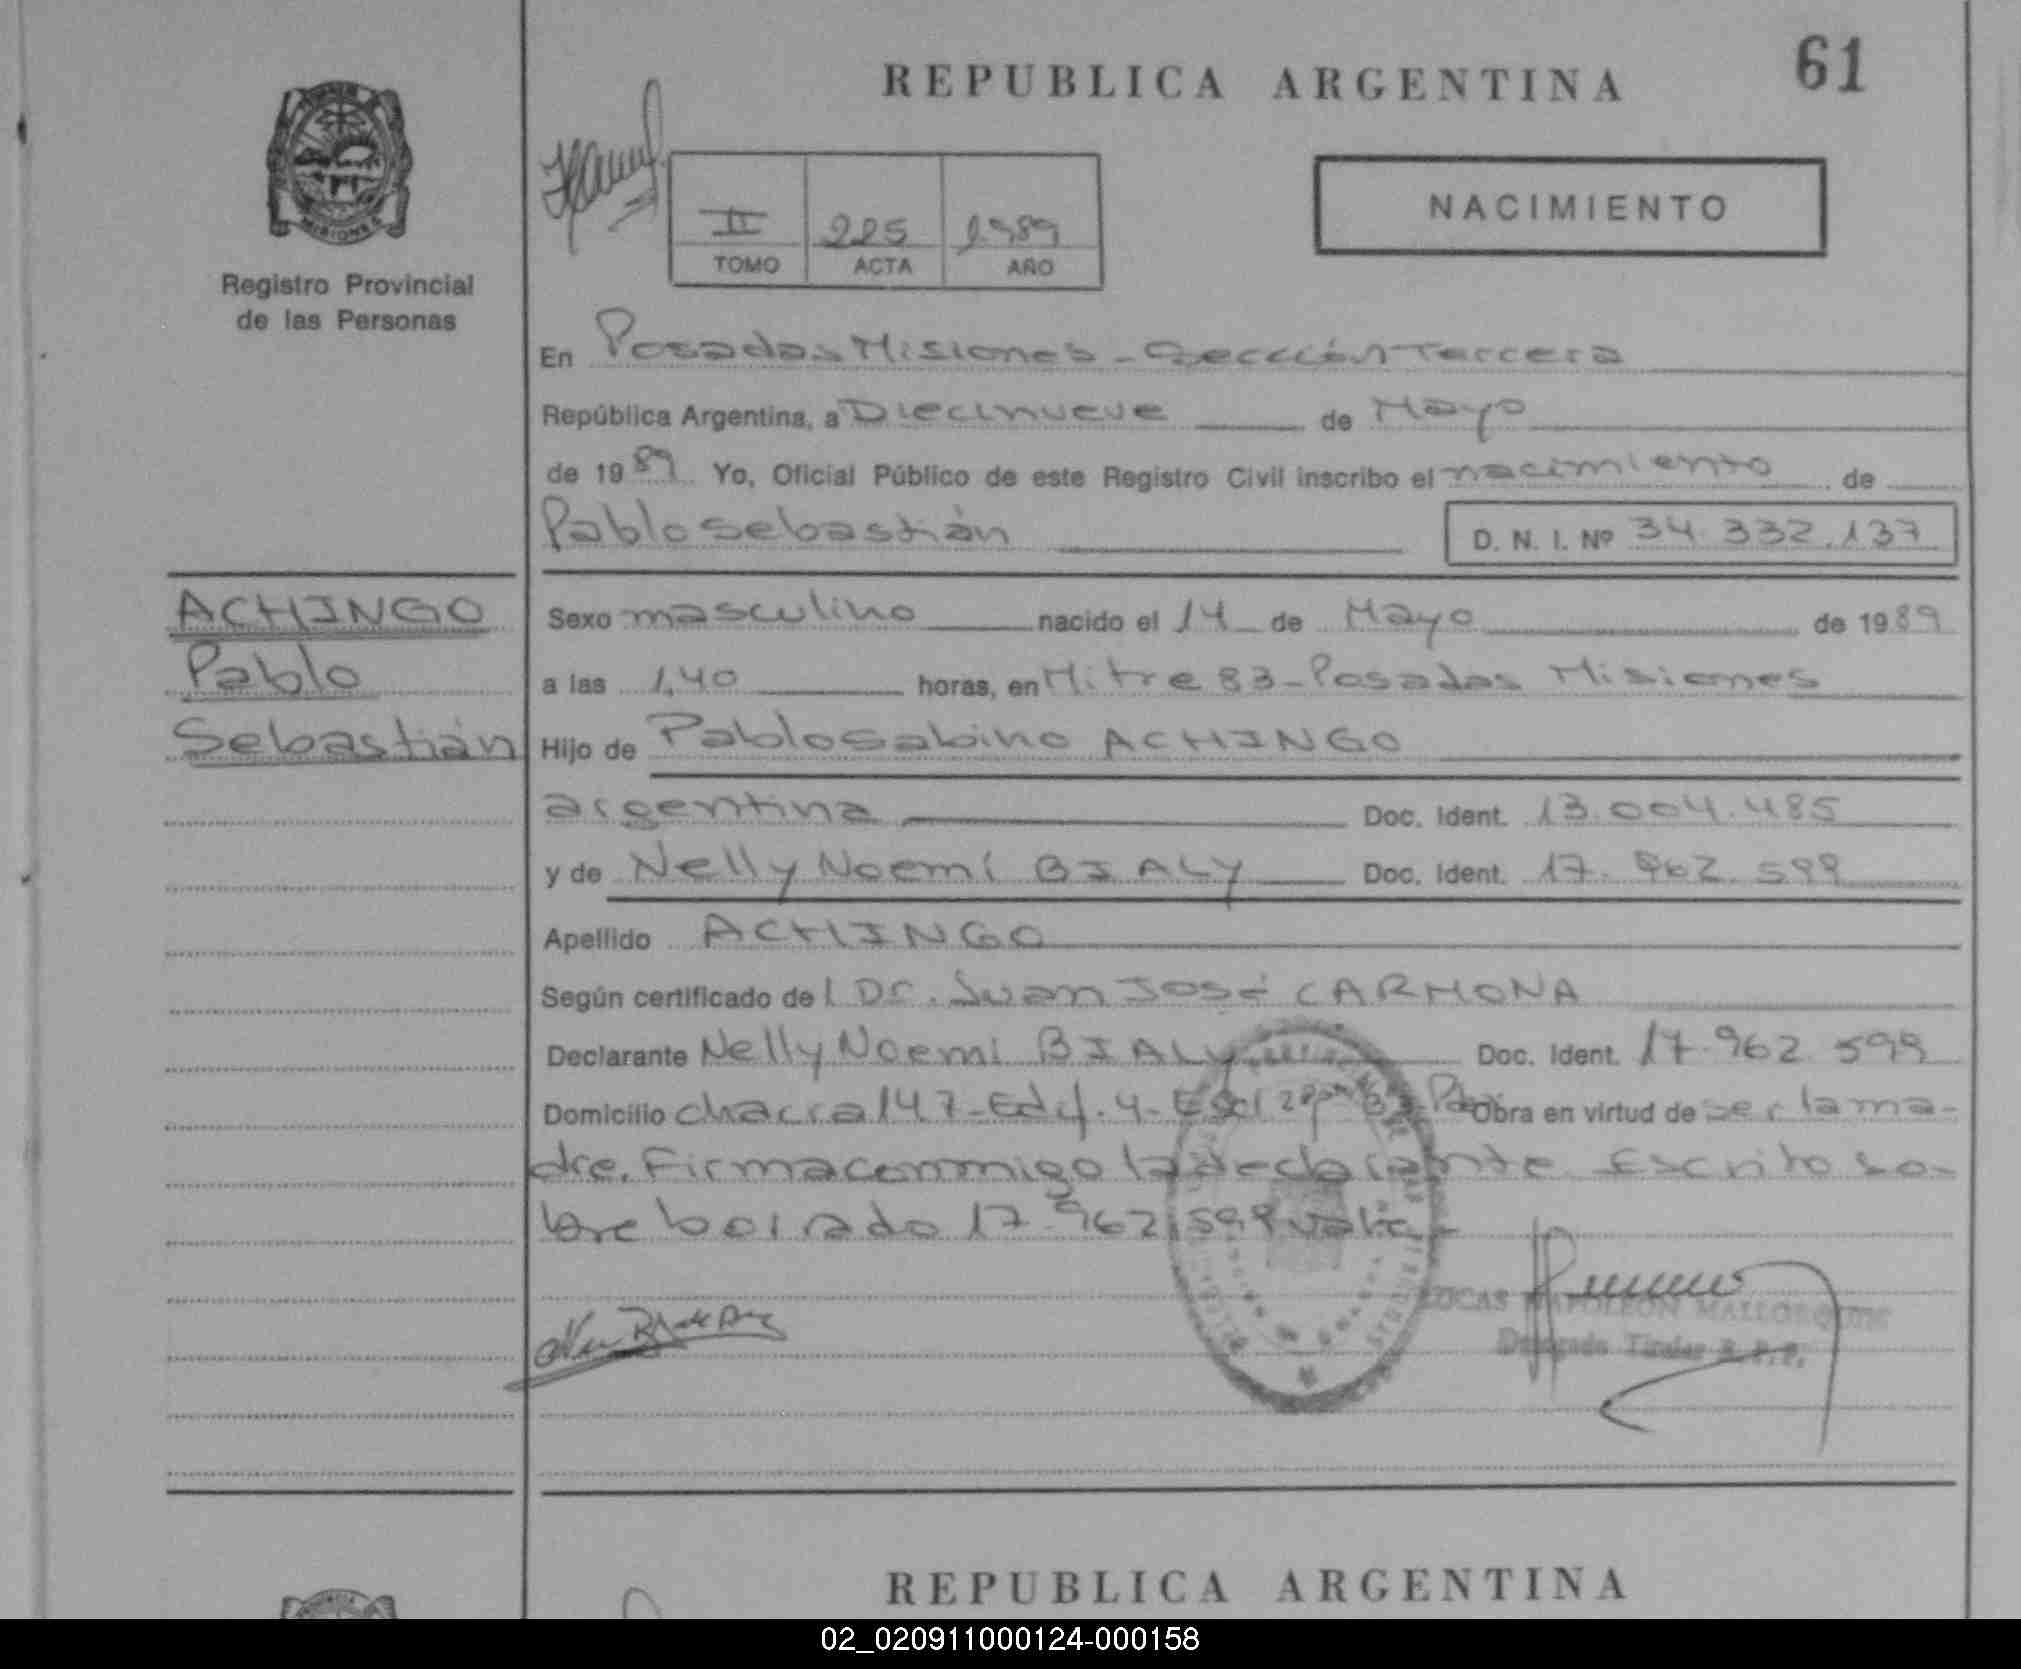 REPUBLICA ARGENTINA
61
MISIONES
Registro Provincial
de las Personas
II 225 1989
TOMO ACTA AÑO
NACIMIENTO
En Posadas Misiones - Sección Tercera
República Argentina, a Diecinueve de Mayo
de 1989 Yo, Oficial Público de este Registro Civil inscribo el nacimiento de
Pablo Sebastián D. N. I. Nº 34.332.137
ACHINGO
Pablo
Sebastián
Sexo masculino nacido el 14 de Mayo de 1989
a las 1,40 horas, en Mitre 83 - Posadas Misiones
Hijo de Pablo Sabino ACHINGO
argentina Doc. Ident. 13.004.485
y de Nelly Noemí BIALY Doc. Ident. 17.962.599
Apellido ACHINGO
Según certificado del Dr. Juan José CARMONA
Declarante Nelly Noemí BIALY Doc. Ident. 17.962.599
Domicilio chacra 147 - Edif. 4 - Obra en virtud de ser la ma-
dre. Firma conmigo la declarante Escrito so-
bre borrado 17.962.599 vale -
LUCAS NAPOLEON
Delegado Titular R.P.P.
REPUBLICA ARGENTINA
02_020911000124-000158